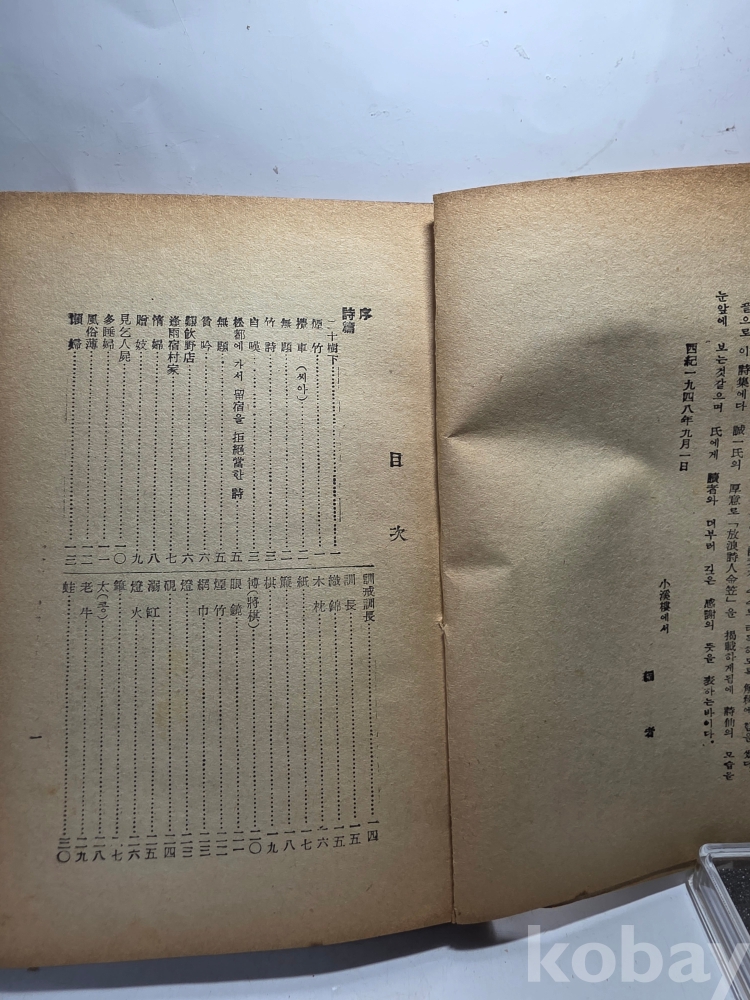 끝으로 이 詩集에다 誠一氏의 厚意로 「放浪詩人金笠」을 揭載하게됨에 詩仙의 모습을
눈앞에 보는것같으며 氏에게 讀者와 더부러 깊은 感謝의 뜻을 表하는바이다.
西紀一九四八年九月一日
小溪樓에서
者
目次
序
詩篇
二十樹下 一
煙竹 一
攪車(씨아) 二
無題 二
竹詩 三
自嘆 三
松都에 가서 留宿을 拒絶當한 詩 五
無題 五
貧吟 六
艱飮野店 六
逢雨宿村家 七
惰婦 八
贈妓 九
見乞人屍 一〇
多睡婦 一一
風俗薄 一二
懶婦 一三
訓戒訓長 一四
訓長 一五
織錦 一五
木枕 一六
紙 一七
簾 一八
棋 一九
博(將棋) 二〇
眼鏡 二一
煙竹 二二
網巾 二三
燈 二三
硯 二四
溺缸 二五
燈火 二六
二七
太(콩) 二八
老牛 二九
蛙 三〇
一
kobay